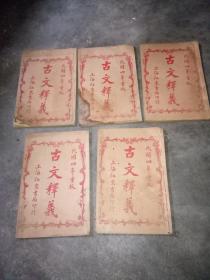 民國四年重校
古文釋義
上海江東書局印行
民國四年重校
古文釋義
上海江東書局印行
民國四年重校
古文釋義
上海江東書局印行
民國四年重校
古文釋義
上海江東書局印行
民國四年
古文釋義
上海江東書局印行